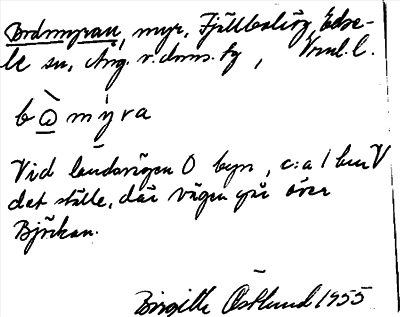 Bodmyran, myr, Fjällboliög, Edse-
le sn, Ång. v. doms. fg, Vrml. l.
bὼmýra
Vid landsvägen O byn, c:a 1 km V
det ställe, där vägen går över
Björkån.
Birgitta Östlund 1955